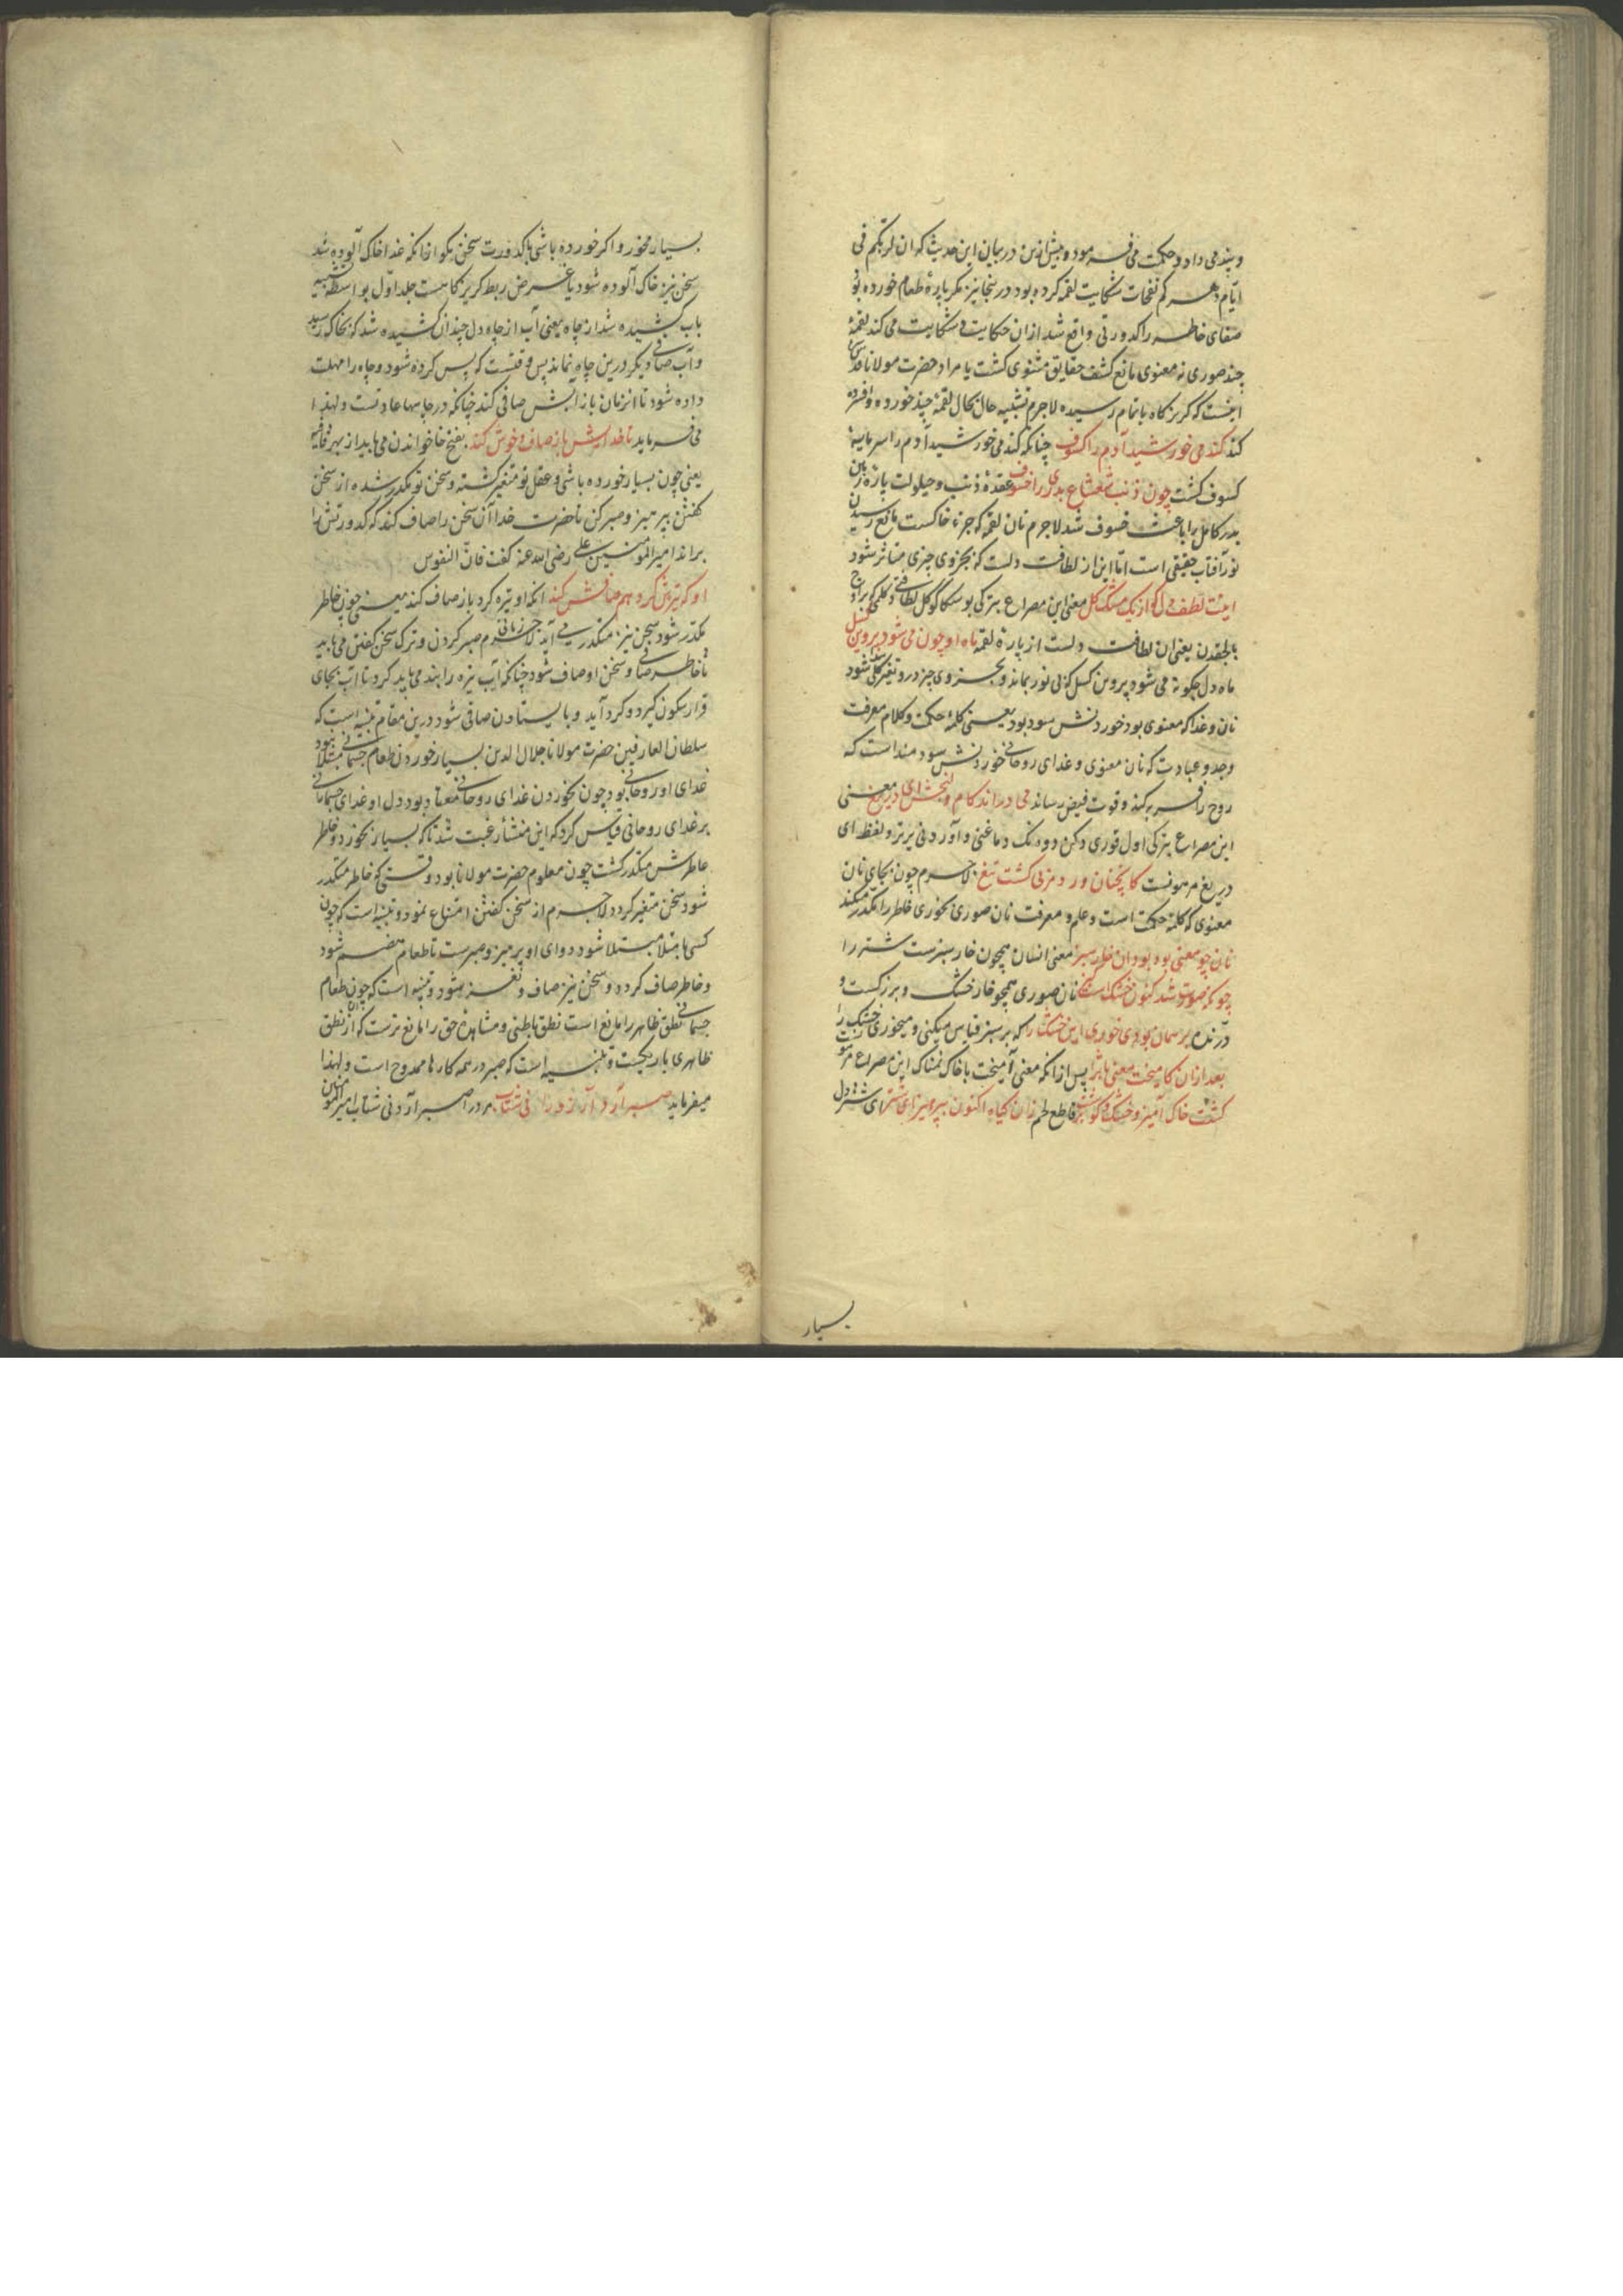 و پند می داد و حکمت می فرمود و پیش ازین در بیان این حدیث که ان لربکم فی
ایام دهرکم نفحات شکایت لقمه کرده بود درینجا نیز مکر پارهٔ طعام خورده بود
صفای خاطر را کدورتی واقع شد از ان حکایت و شکایت می کند لقمهٔ
چند صوری نه معنوی مانع کشف حقایق مثنوی کشت یا مراد حضرت مولانا قدس سره
اینست که کریزکاه باتمام رسیده لاجرم تشبیه حال بحال لقمهٔ چند خورده و افسرده
کند کندمی خورشید آدم را کسوف چنانکه کندمی خورشید آدم را سرمایهٔ
کسوف کشت چون ذنب شعشاع بدری را خسوف عقدهٔ ذنب و حیلولت پارهٔ زمین
بدر کامل را باعث خسوف شد لاجرم نان لقمه که جزء خاکست مانع رسیدن
نور آفتاب حقیقی است اما این از لطافت دلست که بجزوی چیزی متاثر شود
اینت لطف دل که از یک مشت کل معنی این مصراع بترکی بوسکا کوکل لطافتی
بالجقدن یعنی ان لطافت دلست از پارهٔ لقمه ماه او چون می شود پروین کسل
ماه دل چکونه می شود پروین کسل که بی نور بماند و بجزوی چیز درو تغییر کلی پیدا شود
نان و غدا که معنوی بود خوردنش سود بود یعنی کلمهٔ حکمت و کلام معرفت
وجد و عبادت که نان معنوی و غدای روحانی خوردنش سودمند است که
روح را فربه کند و قوت فیض رساند می دراند کام و لنجش ای دریغ معنی
این مصراع بترکی اول قوری دکن دوداک دماغنی و آوردنی یرتر و لفظ ای
دریغ مرهونست کانچنان ورد مربی کشت تیغ لاجرم چون بجای نان
معنوی که کلمهٔ حکمت است و علم و معرفت نان صوری بخوری خاطر را مکدر میکند
نان چو معنی بود بود آن خار سبز معنی انسان همچون خار سبزست شتر را
چونکه صورت شد کنون خشک است و نان صوری همچو خار خشک و برزکست و
درنده بر سمان بوی خوری این خشک را که بر سبز قیاس میکنی و میخوری خشک را
بعد از ان کامیخت معنی با ثری پس از انکه معنی آمیخت با خاک نمناک این مصراع مرهونست
کشت خاک آمیز و خشک و کوشت بر قاطع لحم زان کیاه اکنون بپرهیز ای شتر ای شتر دل
بسیار
بسیار مخور و اکر خورده باشی با کدورت سخن مکو از انکه غدا خاک آلوده شد
سخن نیز خاک آلوده شود یا غرض ربط کریزکاهست جلد اول بواسطهٔ تشبیه
باب کشیده شد از چاه یعنی آب از چاه دل چندان کشیده شد که بخاک رسید
و آب صافی دیکر درین چاه نماند پس وقتست که پس کرده شود و چاه را مهلت
داده شود تا انزمان باز آبش صافی کند چنانکه در چاهها عادتست و لهذا
می فرماید تا خدایش باز صاف و خوش کند بفتح خا خواندن می باید از بهر قافیه
یعنی چون بسیار خورده باشی و عقل تو متغیر کشته و سخن تو مکدر شده از سخن
کفتن بپرهیز و صبر کن تا حضرت خدا آن سخن را صاف کند که کدورتش را
براند امیر المومنین علی رضی الله عنه کفت فان النفوس
او که تیره کرد هم صافش کند انکه او تیره کرد باز صاف کند یعنی چون خاطر
مکدر شود سخن نیز متکدر می آید لاجرم زمانی صبر کردن و ترک سخن کفتن می باید
تا خاطر صافی و سخن او صاف شود چنانکه آب تیره را بند می باید کرد تا آب بجای
قرار سکون کیرد و کرد آید و بایستادن صافی شود درین مقام تنبیه است که
سلطان العارفین حضرت مولانا جلال الدین بسیار خوردن طعام جسمانی مبتلا نبود
غدای او روحانی بود چون بخوردن غدای روحانی معتاد بود دل او غدای جسمانی
بر غدای روحانی قیاس کرد که این منشأ رغبت شد تا که بسیار بخورد و خاطر
عاطرش متکدر کشت چون معلوم حضرت مولانا بود وقتی که خاطر متکدر
شود سخن متغیر کردد لاجرم از سخن کفتن امتناع نمود و تنبیه است که چون
کسی با متلا مبتلا شود دوای او پرهیز و صبرست تا طعام هضم شود
و خاطر صاف کردد و سخن نیز صاف و نغز شود و تنبیه است که چون طعام
جسمانی نطق ظاهر را مانع است نطق باطنی و مشاهدهٔ حق را مانع ترست که آن از نطق
ظاهری باریکست و تنبیه است که صبر در همه کارها ممدوح است و لهذا
میفرماید صبر آرد آرزو را نی شتاب مراد را صبر آرد نی شتاب امیر المومنین